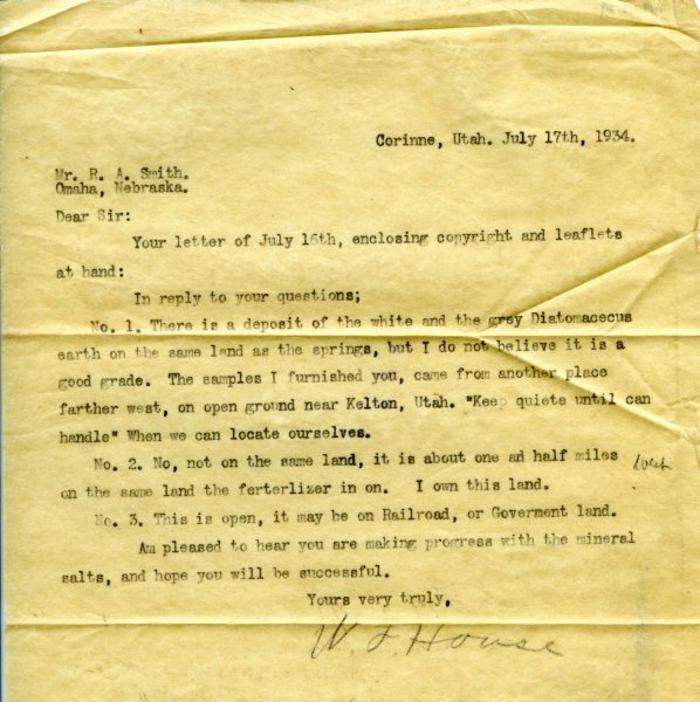 Corinne, Utah. July 17th, 1934.
Mr. R. A. Smith.
Omaha, Nebraska.
Dear Sir:
Your letter of July 16th, enclosing copyright and leaflets
at hand:
In reply to your questions;
No. 1. There is a deposit of the white and the grey Diatomacecus
earth on the same land as the springs, but I do not believe it is a
good grade. The samples I furnished you, came from another place
farther west, on open ground near Kelton, Utah. "Keep quiete until can
handle" When we can locate ourselves.
No. 2. No, not on the same land, it is about one ad half miles west
on the same land the ferterlizer in on. I own this land.
No. 3. This is open, it may be on Railroad, or Goverment land.
Am pleased to hear you are making progress with the mineral
salts, and hope you will be successful.
Yours very truly,
W. J. House